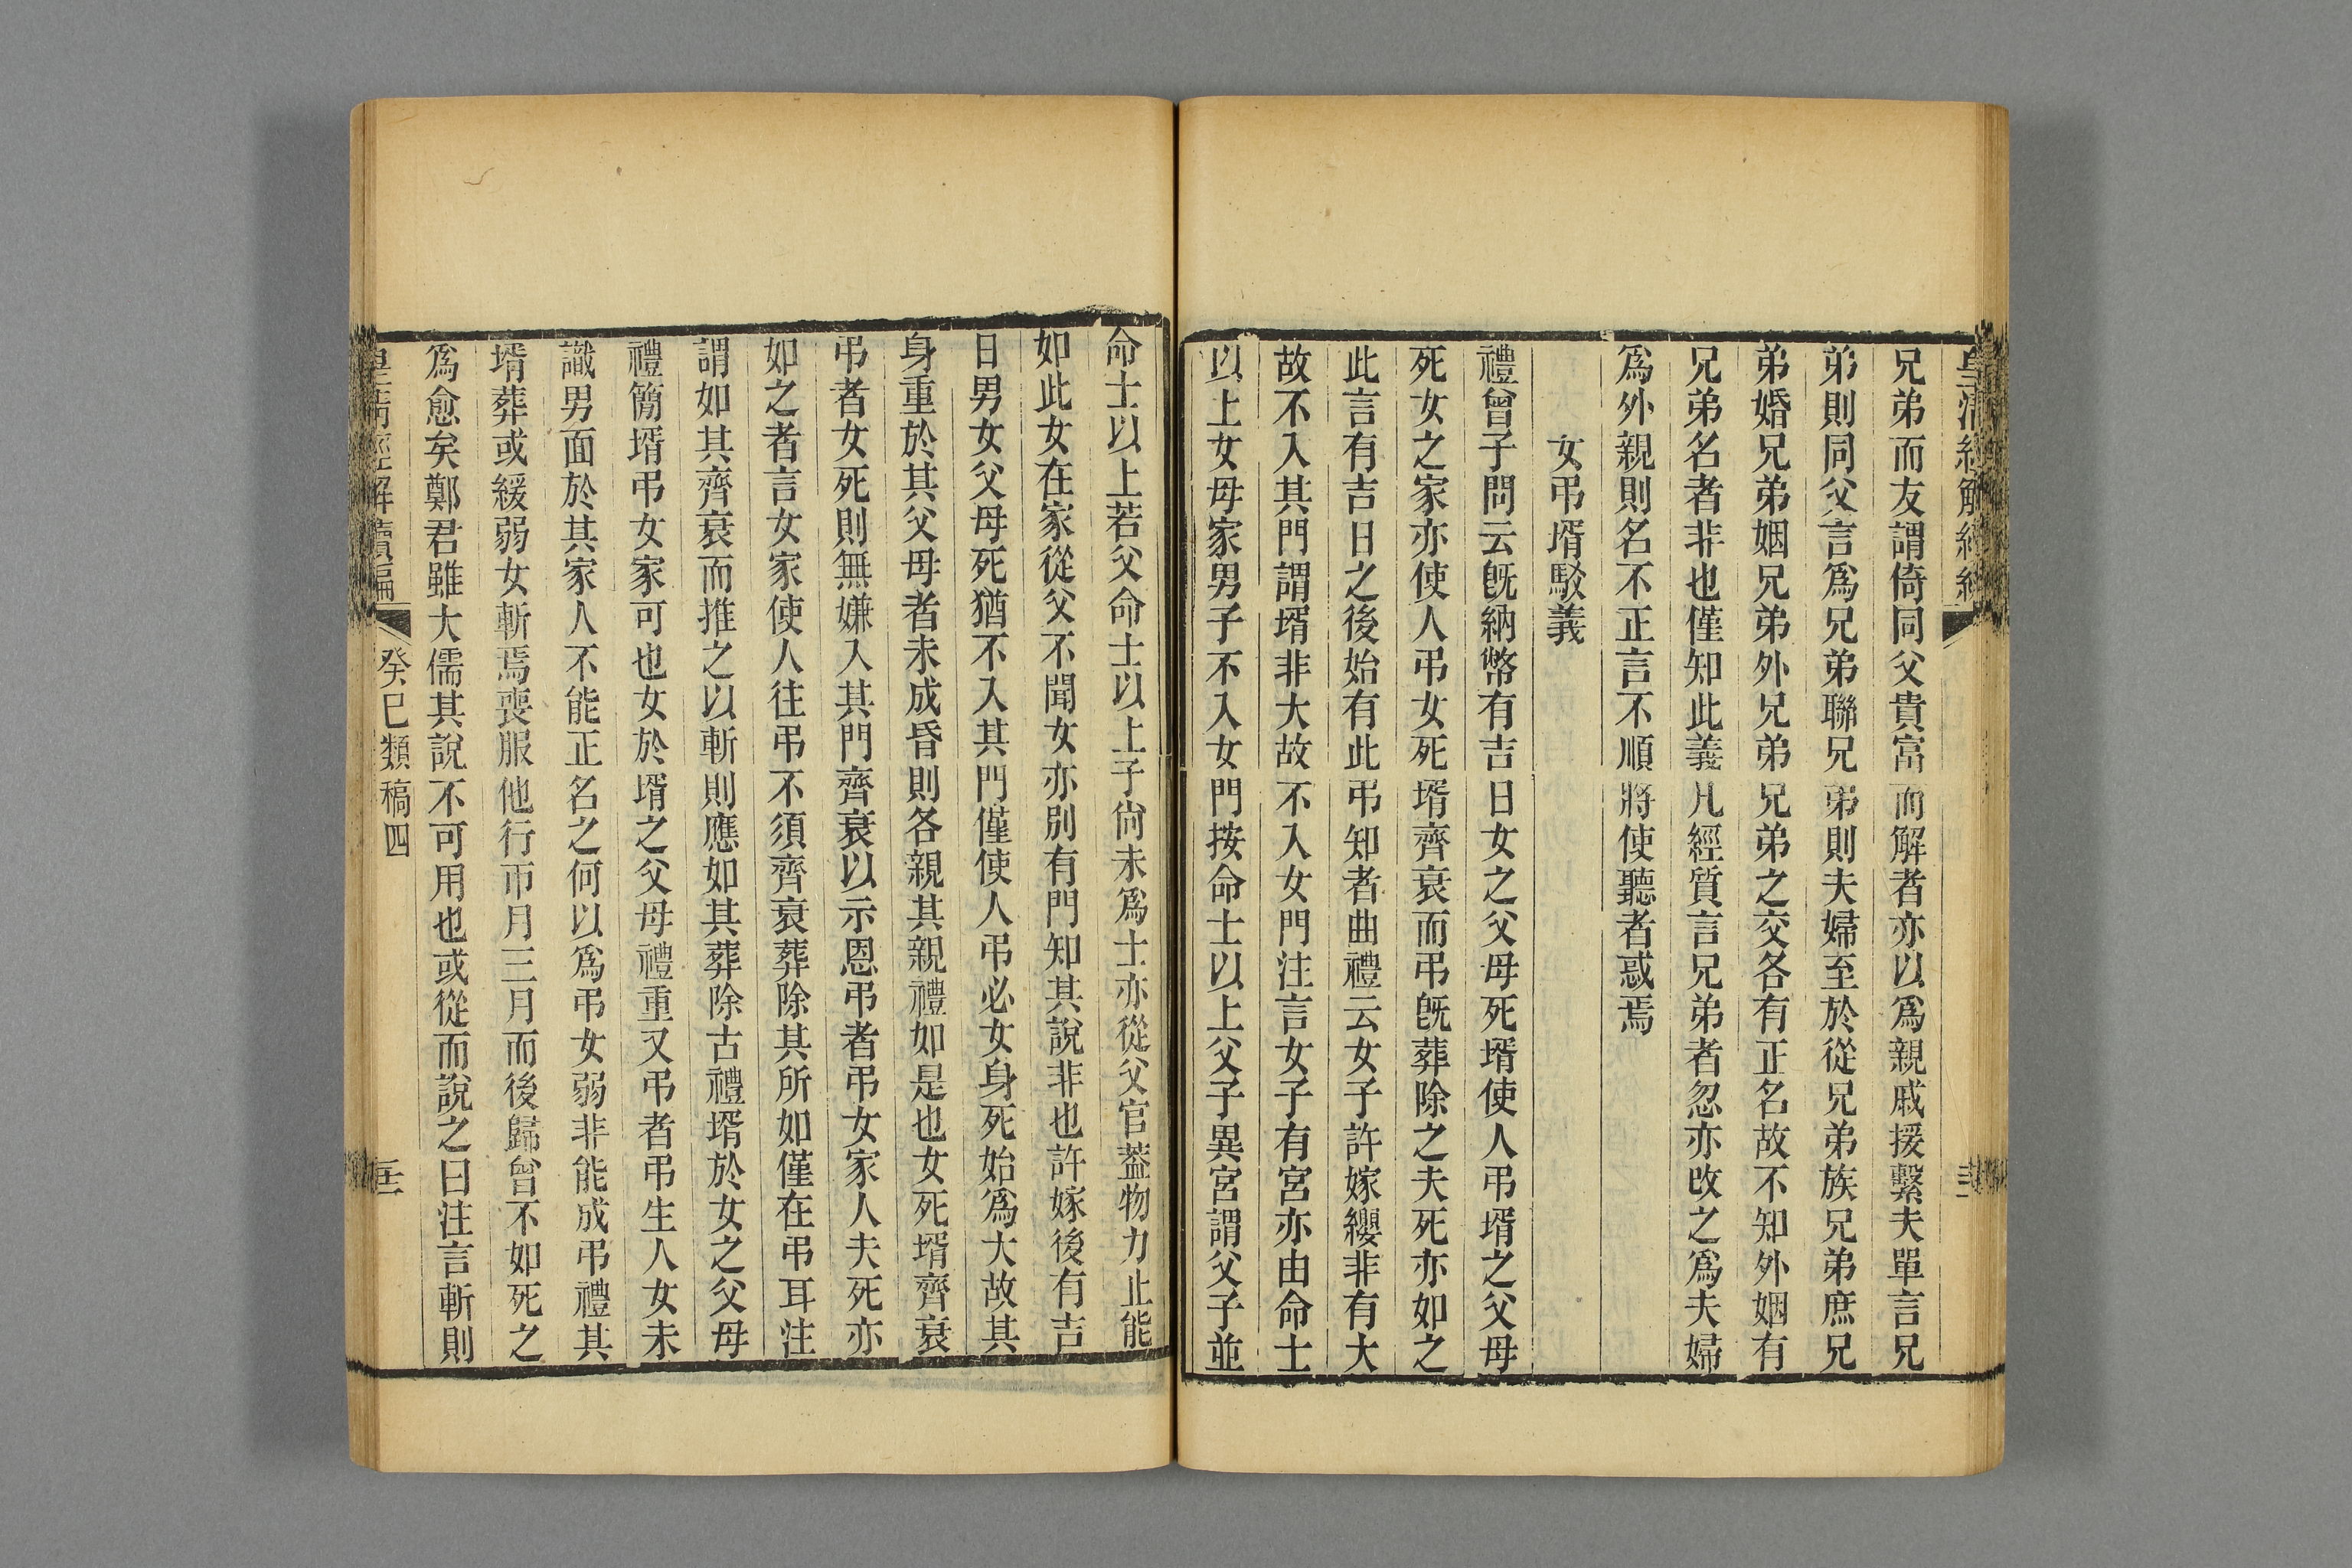 兄弟而友謂倚同父貴富而解者亦以爲親戚援繫夫單言兄
弟則同父言爲兄弟聯兄弟則夫婦至於從兄弟族兄弟庶兄
弟婚兄弟姻兄弟外兄弟兄弟之交各有正名故不知外姻有
兄弟名者非也僅知此義凡經質言兄弟者忽亦改之爲夫婦
爲外親則名不正言不順將使聽者惑焉
女弔壻駁義
禮曾子問云旣納幣有吉日女之父母死壻使人弔壻之父母
死女之家亦使人弔女死壻齊衰而弔旣葬除之夫死亦如之
此言有吉日之後始有此弔知者曲禮云女子許嫁纓非有大
故不入其門謂壻非大故不入女門注言女子有宮亦由命士
以上女母家男子不入女門按命士以上父子異宮謂父子並
命士以上若父命士以上子尙未爲士亦從父官葢物力止能
如此女在家從父不聞女亦別有門知其說非也許嫁後有吉
日男女父母死猶不入其門僅使人弔必女身死始爲大故其
身重於其父母者未成昏則各親其親禮如是也女死壻齊衰
弔者女死則無嫌入其門齊衰以示恩弔者弔女家人夫死亦
如之者言女家使人往弔不須齊衰葬除其所如僅在弔耳注
謂如其齊衰而推之以斬則應如其葬除古禮壻於女之父母
禮簡壻弔女家可也女於壻之父母禮重又弔者弔生人女未
識男面於其家人不能正名之何以爲弔女弱非能成弔禮其
壻葬或緩弱女斬焉喪服他行帀月三月而後歸曾不如死之
爲愈矣鄭君雖大儒其說不可用也或從而說之曰注言斬則
皇淸經解續編
癸巳類稿四